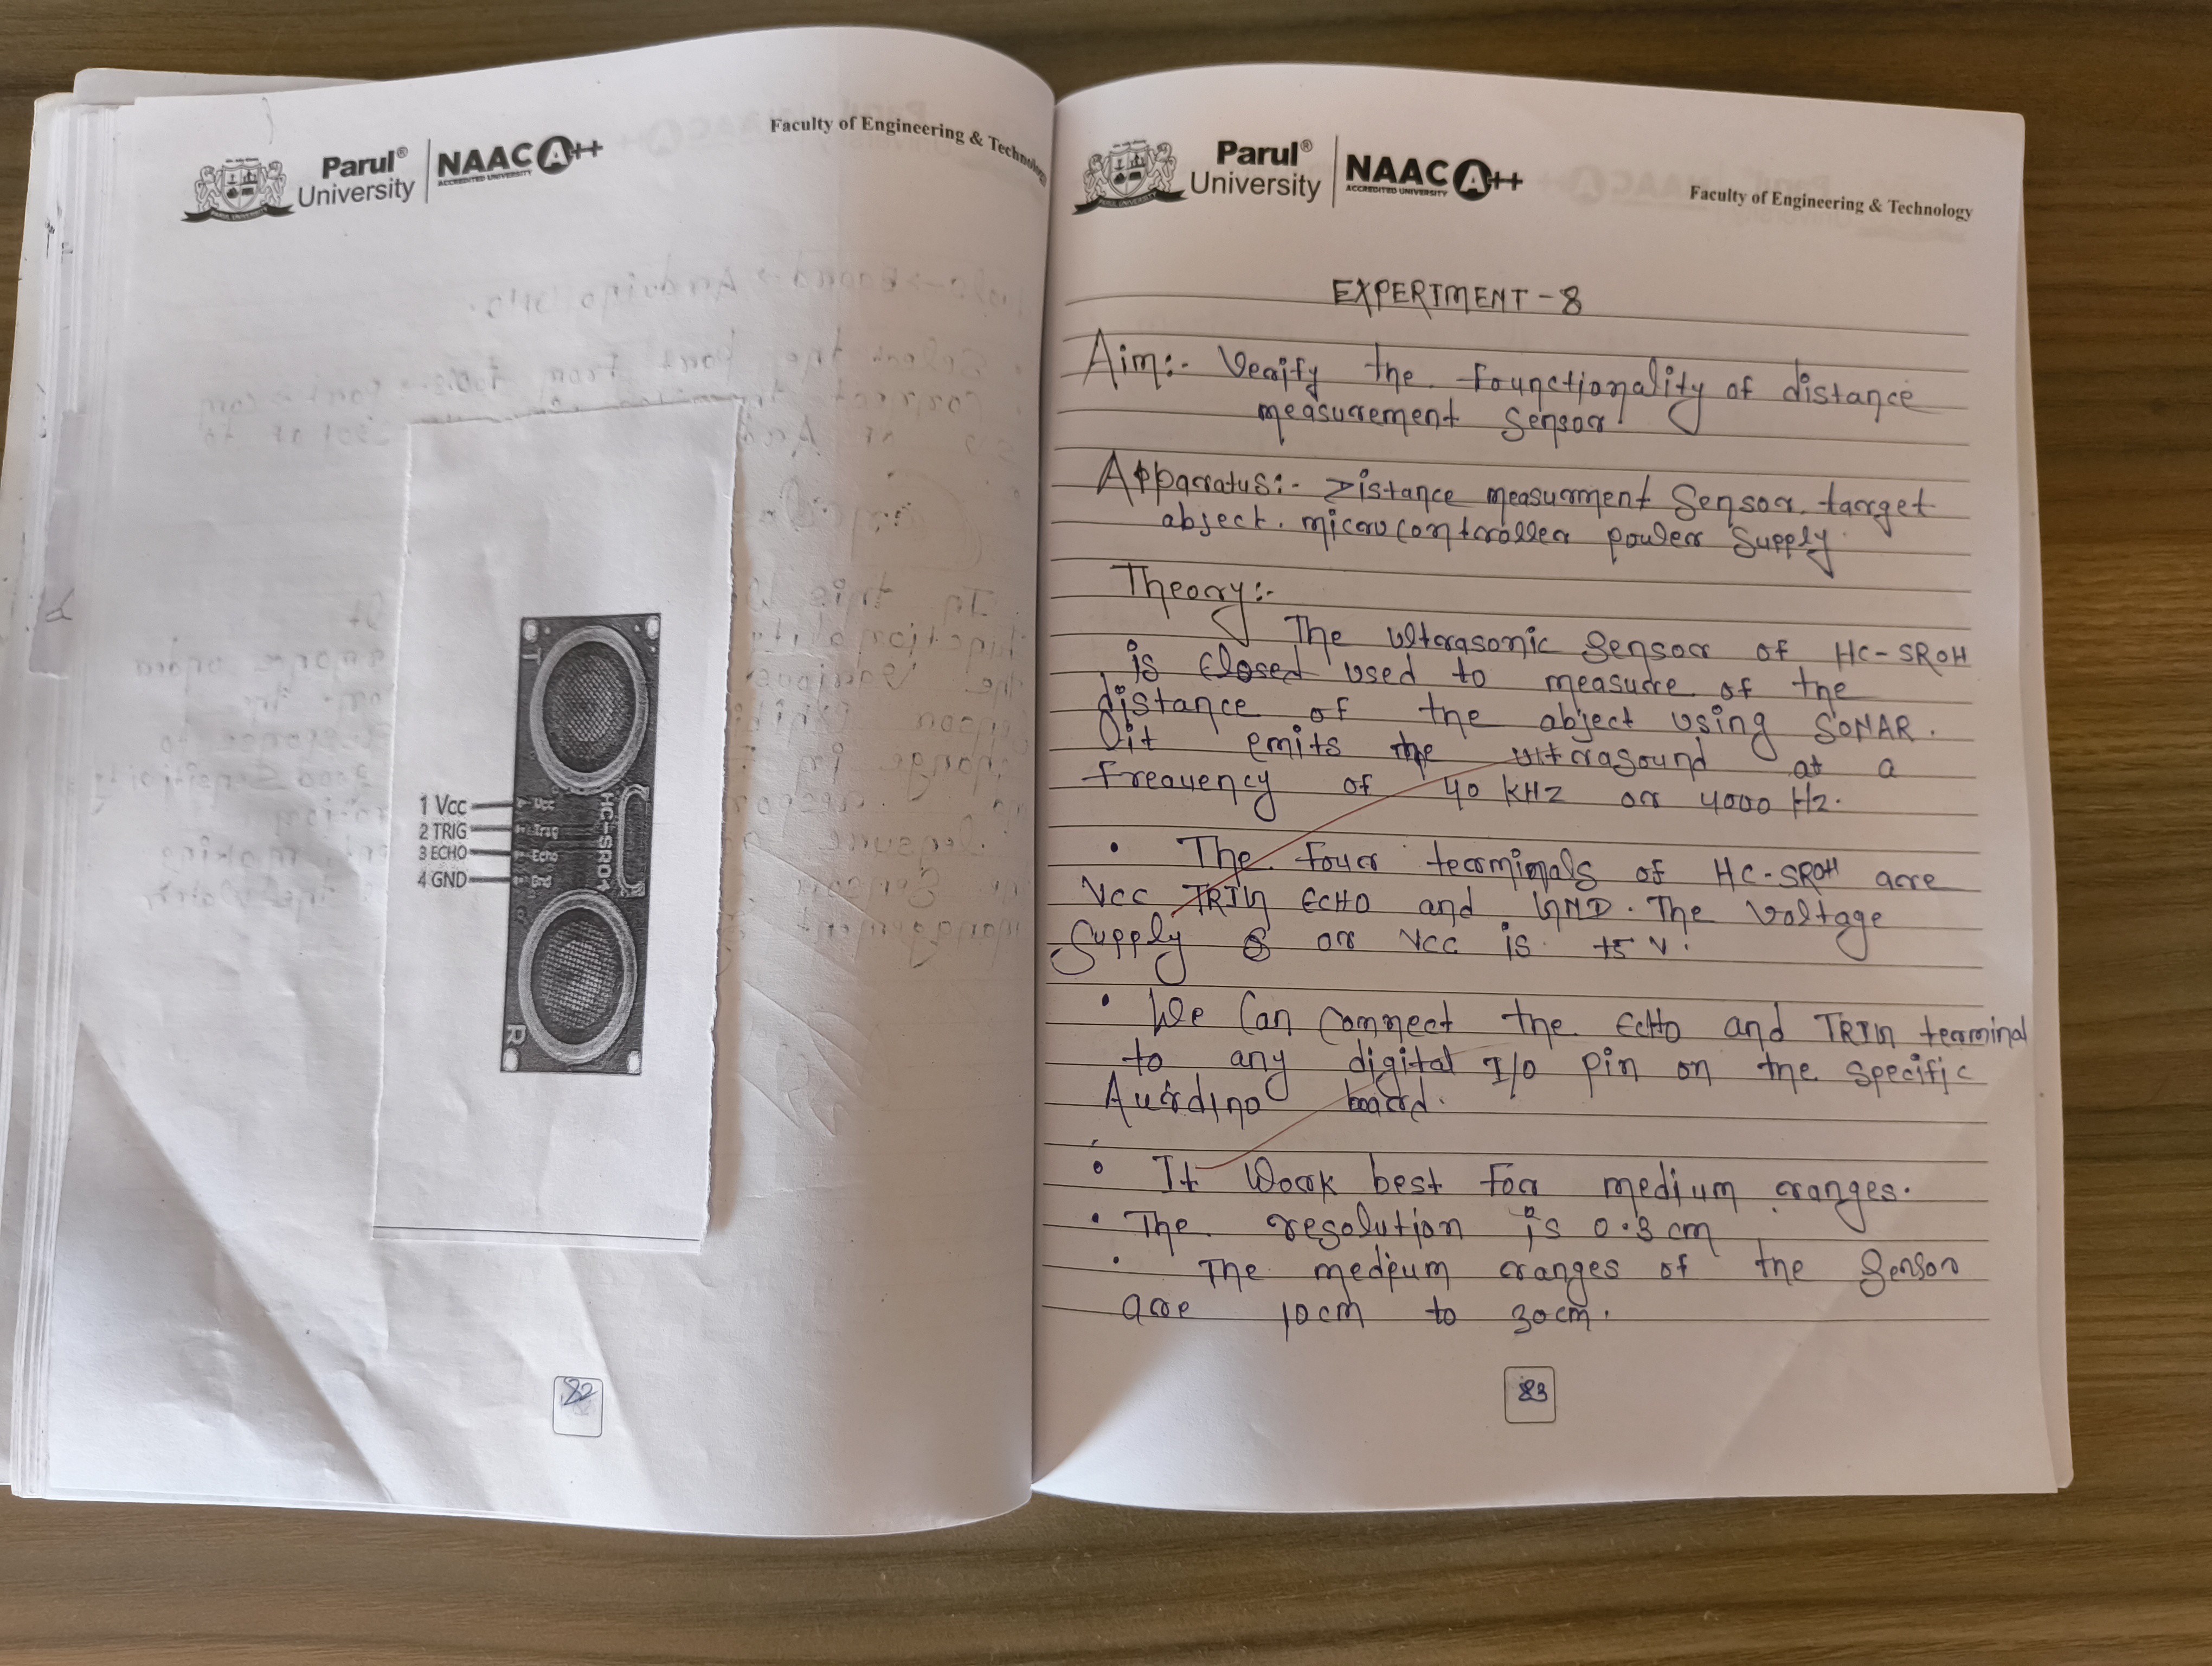 Parul®
University
NAAC A++
ACCREDITED UNIVERSITY
Faculty of Engineering & Technology
PARUL UNIVERSITY
T
1 Vcc
2 TRIG
3 ECHO
4 GND
Vcc
Trig
Echo
Gnd
HC-SR04
R
82
Parul®
University
NAAC A++
ACCREDITED UNIVERSITY
Faculty of Engineering & Technology
EXPERIMENT - 8
Aim:- Verify the founctionality of distance
measurement Sensor.
Apparatus:- Distance measurment Sensor. target
abject. microcontroller power Supply.
Theory:-
The ultrasonic Sensor of HC-SR04
is closed used to measure of the
distance of the abject using SONAR.
it emits the ultrasound at a
freauency of 40 KHZ or 4000 Hz.
• The four terminals of HC-SR04 are
Vcc TRIG ECHO and GND. The voltage
Supply or Vcc is +5 V.
• We Can Connect the EcHo and TRIG terminal
to any digital I/O Pin on the specific
Auirdino board.
• It Work best for medium ranges.
• The resolution is 0.3 cm
• The medium ranges of the Sensor
are 10cm to 30cm.
83